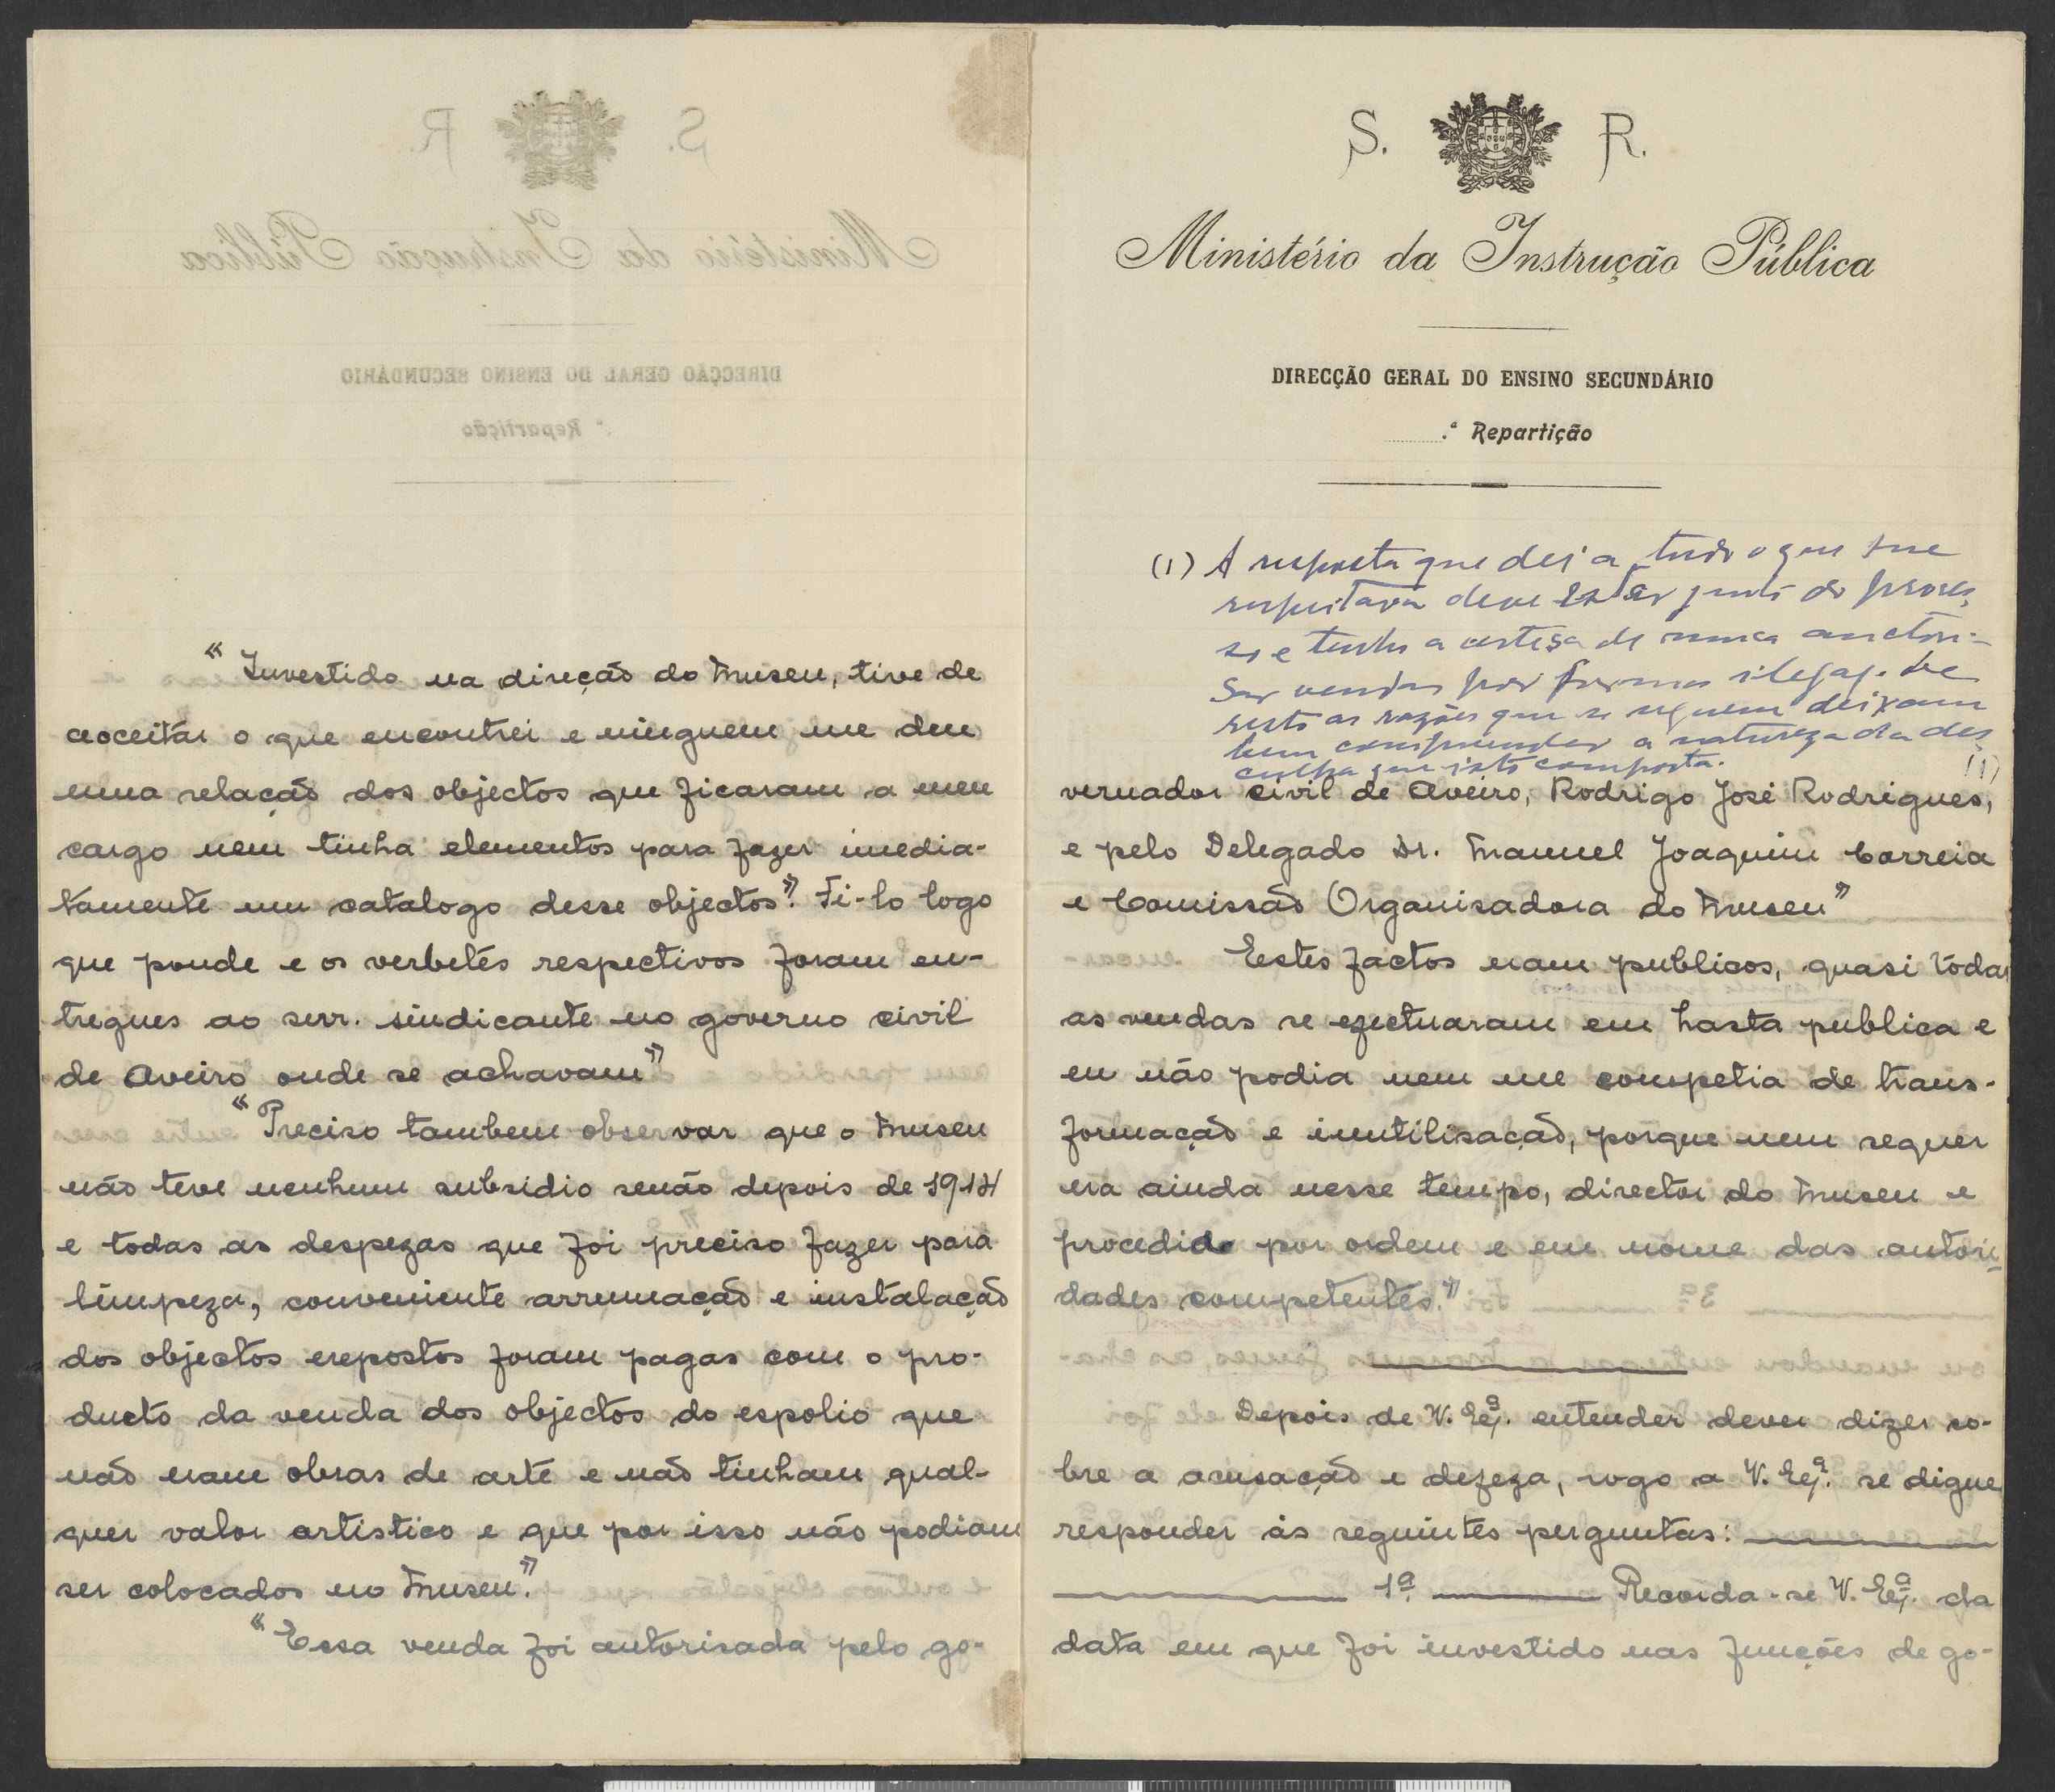 "Investido na direção do Museu, tive de
acceitar o que encontrei e ninguem me deu
uma relação dos objectos que ficaram a meu
cargo nem tinha elementos para fazer imedia-
tamente um catalogo desse objectos". Fi-lo logo
que poude e os verbetes respectivos foram en-
tregues ao snr. sindicante no governo civil
de Aveiro onde se achavam"
"Preciso tambem observar que o Museu
não teve nenhum subsidio senão depois de 1914
e todas as despezas que foi preciso fazer para
limpeza, conveniente arrumação e instalação
dos objectos expostos foram pagas com o pro-
ducto da venda dos objectos do espolio que
não eram obras de arte e não tinham qual-
quer valor artistico e que por isso não podiam
ser colocados no Museu".
"Essa venda foi autorisada pelo go-
S. R.
Ministério da Instrução Pública
DIRECÇÃO GERAL DO ENSINO SECUNDÁRIO
.ª Repartição
(1) A resposta que dei a tudo o que me
respeitava deve estar junto do proces-
so e tenho a certesa de nunca auctori-
sar vendas por formas ilegaes. De
resto as razões que se seguem deixam
bem comprehender a natureza da des
culpa que isto comporta.
(1)
vernador civil de Aveiro, Rodrigo José Rodrigues,
e pelo Delegado Dr. Manuel Joaquim Correia
e Comissão Organisadora do Museu"
Estes factos eram publicos, quasi todas
as vendas se efectuaram em hasta publica e
eu não podia nem me competia de trans-
formação e inutilisação, porque nem sequer
era ainda nesse tempo, director do Museu e
procedido por ordem e em nome das autori-
dades competentes."
Depois de V. Exª. entender dever dizer so-
bre a acusação e defeza, rogo a V. Exª. se digne
responder ás seguintes perguntas:
1ª Recorda-se V. Exª. da
data em que foi investido nas funções de go-